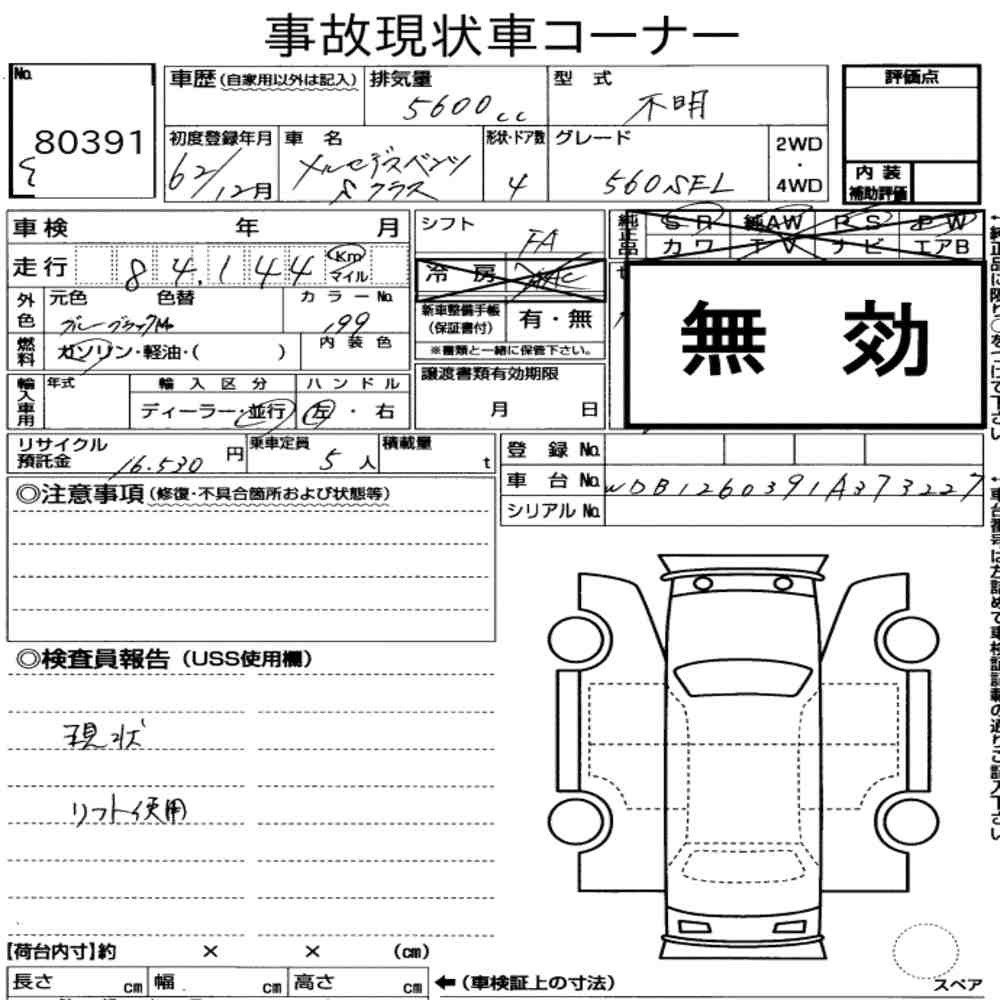 事故現状車コーナー
No. 80391
車歴(自家用以外は記入) 排気量 5600cc 型式 不明 評価点
初度登録年月 62/12月 車名 メルセデスベンツ Sクラス 形状・ドア数 4 グレード 560SEL 2WD・4WD
内装補助評価
車検 年 月 シフト FA
純正品 SR 純AW PS PW
カワ TV ナビ エアB
走行 84,144 Km マイル
冷房 AAC
外色 元色 色替 カラーNo. 199
新車整備手帳(保証書付) 有・無
※書類と一緒に保管下さい。
無効
燃料 ガソリン・軽油・( ) 内装色
輸入車用 年式 輸入区分 ハンドル
ディーラー・並行 左・右
譲渡書類有効期限
月 日
リサイクル預託金 16.530円 乗車定員 5人 積載量 t
登録No.
車台No. WDB1260391A373227
シリアルNo.
◎注意事項(修復・不具合箇所および状態等)
◎検査員報告(USS使用欄)
現状
リフト使用
【荷台内寸】約 × × (cm)
長さ cm 幅 cm 高さ cm ←(車検証上の寸法)
スペア